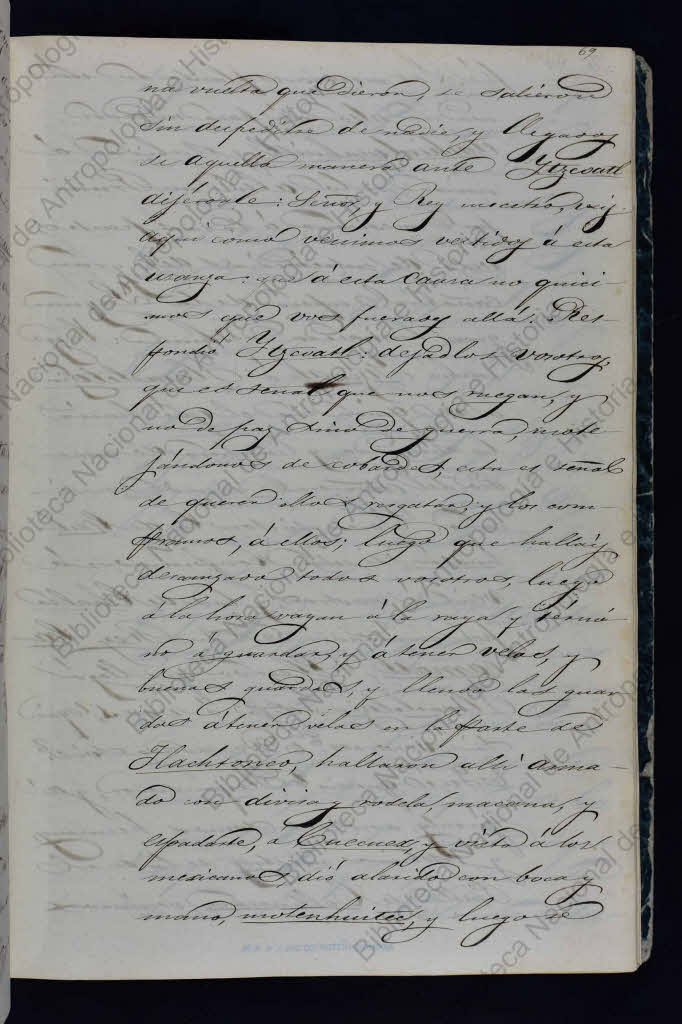 69
na vuelta que dieron, se salieron
sin despedirse de nadie, y llegaron
de aquella manera ante Ytzcoatl
dijéronle: Señor, y Rey nuestro, veis
aqui como venimos vestidos á esta
usanza: que á esta causa no quici-
mos que vos fuerais allá. Res-
pondió Ytzcoatl: dejadlos vosotros,
que es señal que nos ruegan, y
no de paz sino de guerra, mote
jándonos de cobardes, esta es señal
de querer ellos rasgatar, y los com-
pramos, á ellos; luego que hallais
descansado todos vosotros, luego
á la hora vayan á la raya y térmi-
no á guardar, y á tener velas, y
buenas guardas, y llendo las guar
das á tener velas en la parte de
Tlachtonco, hallaron alli arma-
do con divisa y rodela, macana, y
espadarte, á Cuecuex, y visto á los
mexicanos, dió alarido con boca y
mano, motenhuitec, y luego se
Biblioteca Nacional de Antropología e Historia